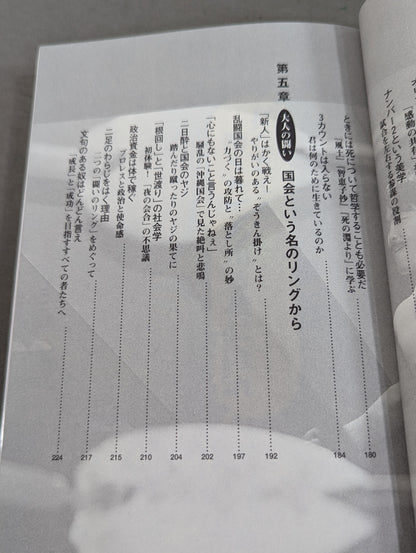 ナンバー2という美学
試合を左右する参謀の役割
ときには死について哲学することも必要だ
『風土』『智恵子抄』『死の淵より』に学ぶ
180
3カウントは入らない
君は何のために生きているのか
184
第五章 大人の闘い 国会という名のリングから
「新人」はかく戦え!
やりがいのある〝ぞうきん掛け〟とは?
192
乱闘国会の日は暮れて…
〝力づく〟の攻防と〝落とし所〟の妙
197
「心にもないこと言うんじゃねぇ」
騒乱の「沖縄国会」で見た絶叫と悲鳴
202
二日酔と国会のヤジ
踏んだり蹴ったりのヤジの果てに
204
「根回し」と「世渡り」の社会学
初体験!「夜の会合」の不思議
210
政治資金は体で稼ぐ
プロレスと政治と使命感
215
二足のわらじをはく理由
二つの「闘いのリング」をめぐって
217
文句のある奴はどんどん言え
「成長」と「成功」を目指すすべての者たちへ
224